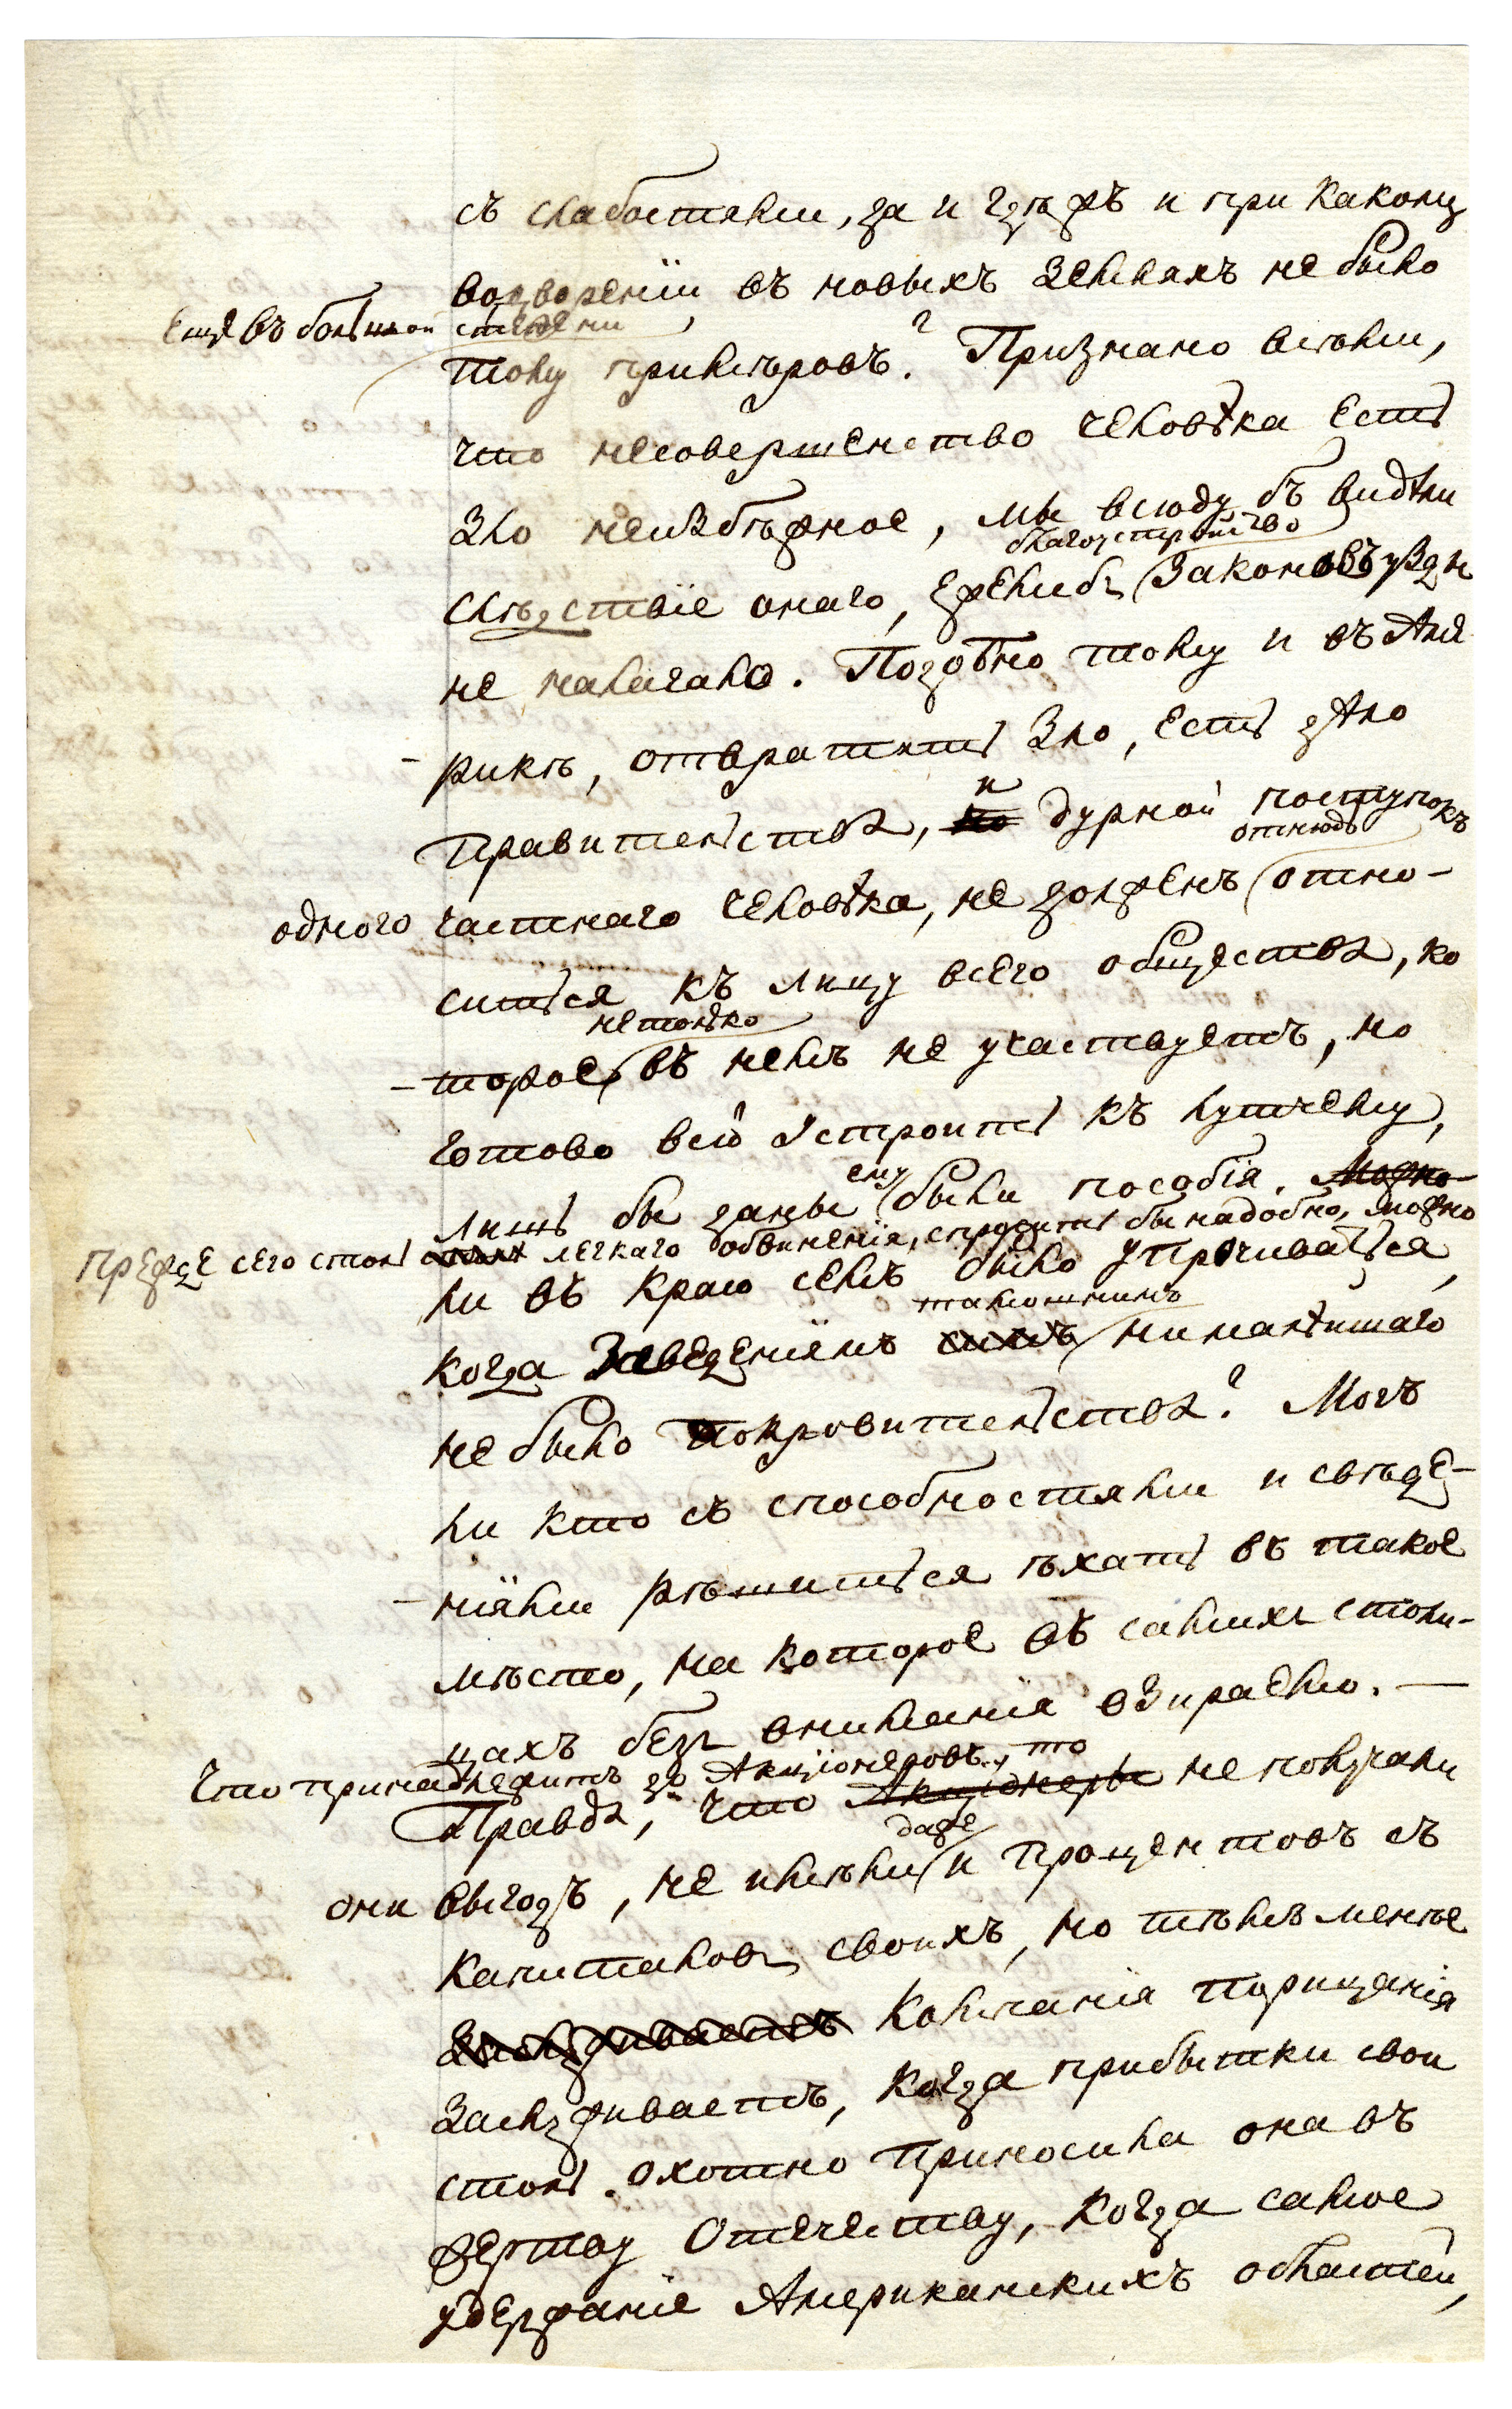 съ слабостями, да и гдѣжъ и при какомъ
водвореніи въ новыхъ земляхъ не было
еще въ большой степени
тому примѣровъ? Признано всѣми,
что несовершенство человѣка есть
зло неизбѣжное, мы всюду бъ видѣли
благоустройство
слѣдствіе онаго, ежелибъ законовъ узды
не налагало. Подобно тому и въ Аме-
рикѣ, отвратить зло, есть дѣло
и
правительства, но дурной поступокъ
отнюдь
одного частнаго человѣка, не долженъ отно-
ситься къ лицу всего общества, ко
не только
-торое въ немъ не участвуетъ, но
готово всіо устроить къ лутчему,
ему
лишь бы даны были пособія. Можно
Прежде сего столь легкаго обвиненія, спросить бы надобно, можно
ли въ краю семъ было упрочиваться,
тамошнимъ
когда заведеніямъ симъ ни малѣйшаго
не было покровительства? Могъ
ли кто съ способностями и свѣдѣ-
-ніями рѣшиться ѣхать въ такое
мѣсто, на которое въ самихъ столи-
цахъ безъ вниманія взираемо. —
Что принадлежитъ до Акціонеровъ, то
Правда, что Акціонеры не получали
даже
они выгодъ, не имѣли и процентовъ съ
капиталовъ своихъ, но тѣмъ менѣе
заслуживаетъ Компанія порицанія
заслуживаетъ, когда прибытки свои
столь охотно приносила она въ
жертву Отечеству, когда самое
удержаніе Американскихъ областей,